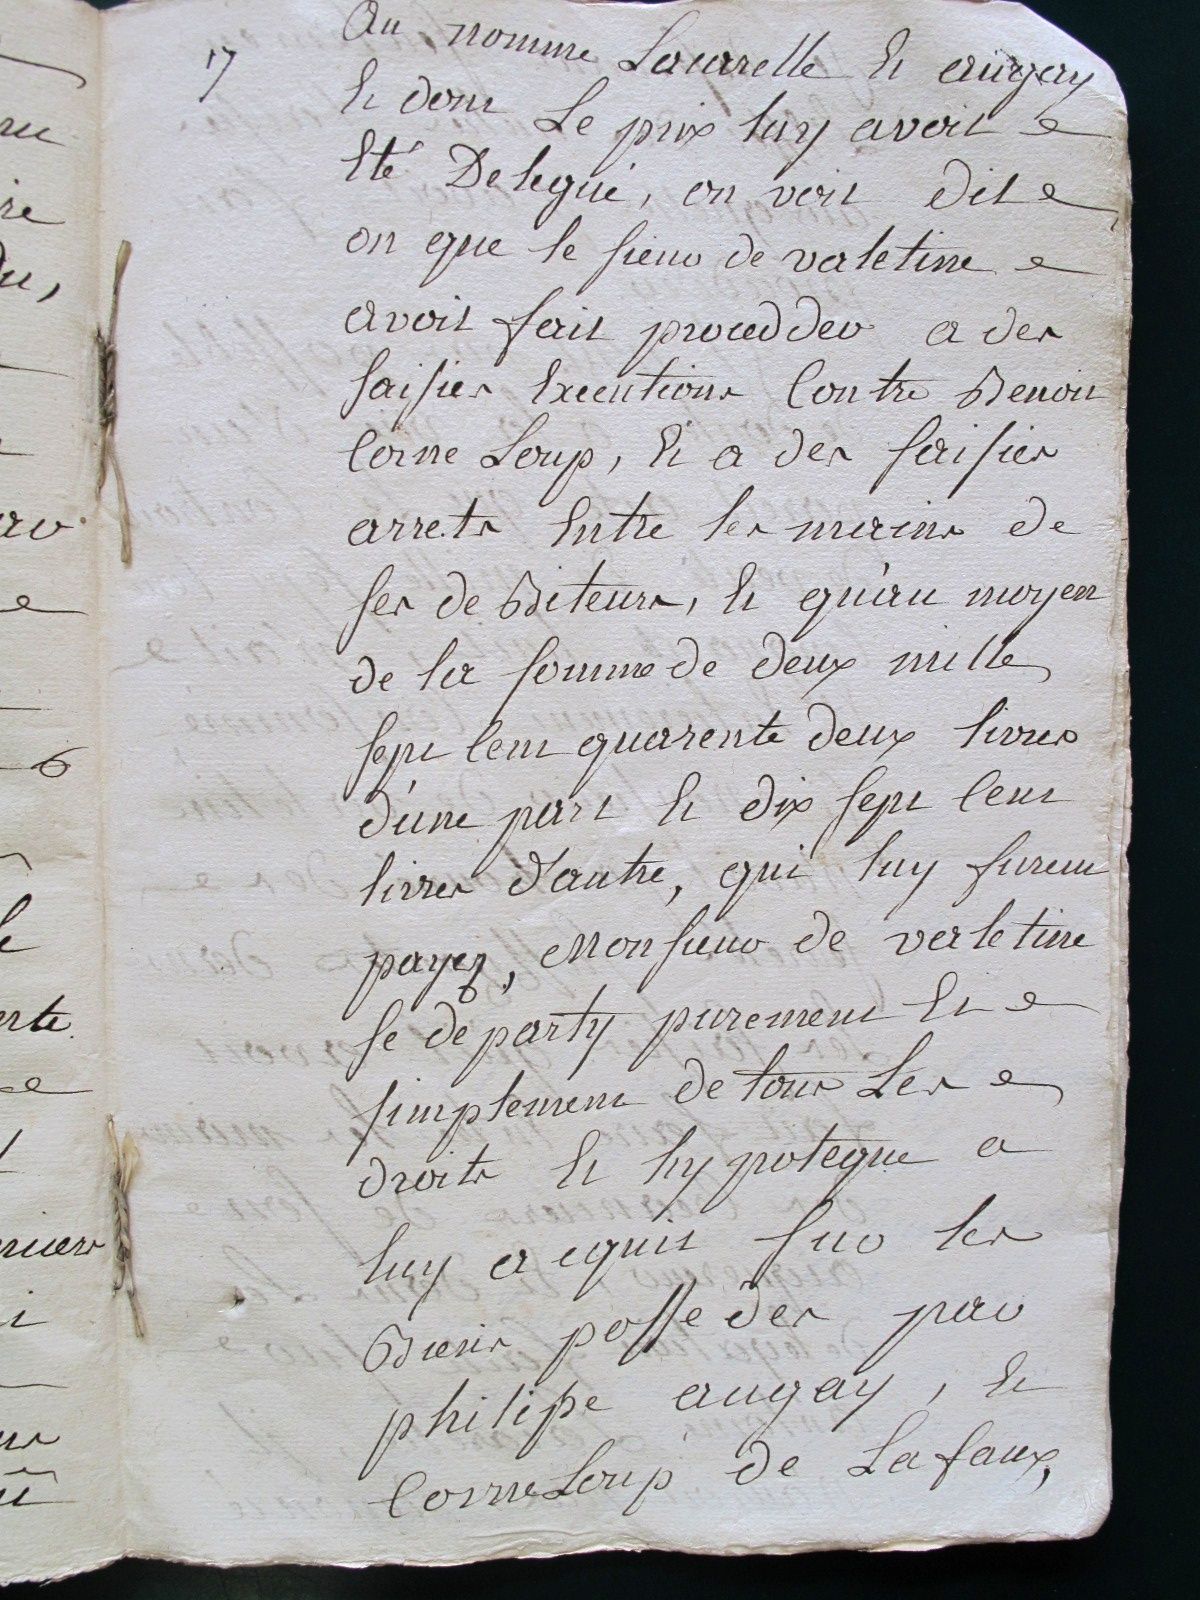 17
Au nomme Laurelle Et augay
Et dont Le prix luy avoit
Eté Delegué, on voit dit
on que le sieur de valetine
avoit fait procedder a des
saisies Executions Contre Benoit
Corne Loup, Et a des saisies
arrets Entre les mains de
ses debiteurs, Et qu'au moyen
de la somme de deux mille
sept Cent quarente deux livres
d'une part Et dix sept Cent
livres d'autre, qui luy furent
payez, Monsieur de valetine
se departy purement Et
simplement de tous Les
droits Et hypoteque a
luy acquit sur les
Biens possedes par
philipe augay, Et
CorneLoup de Lafaux,